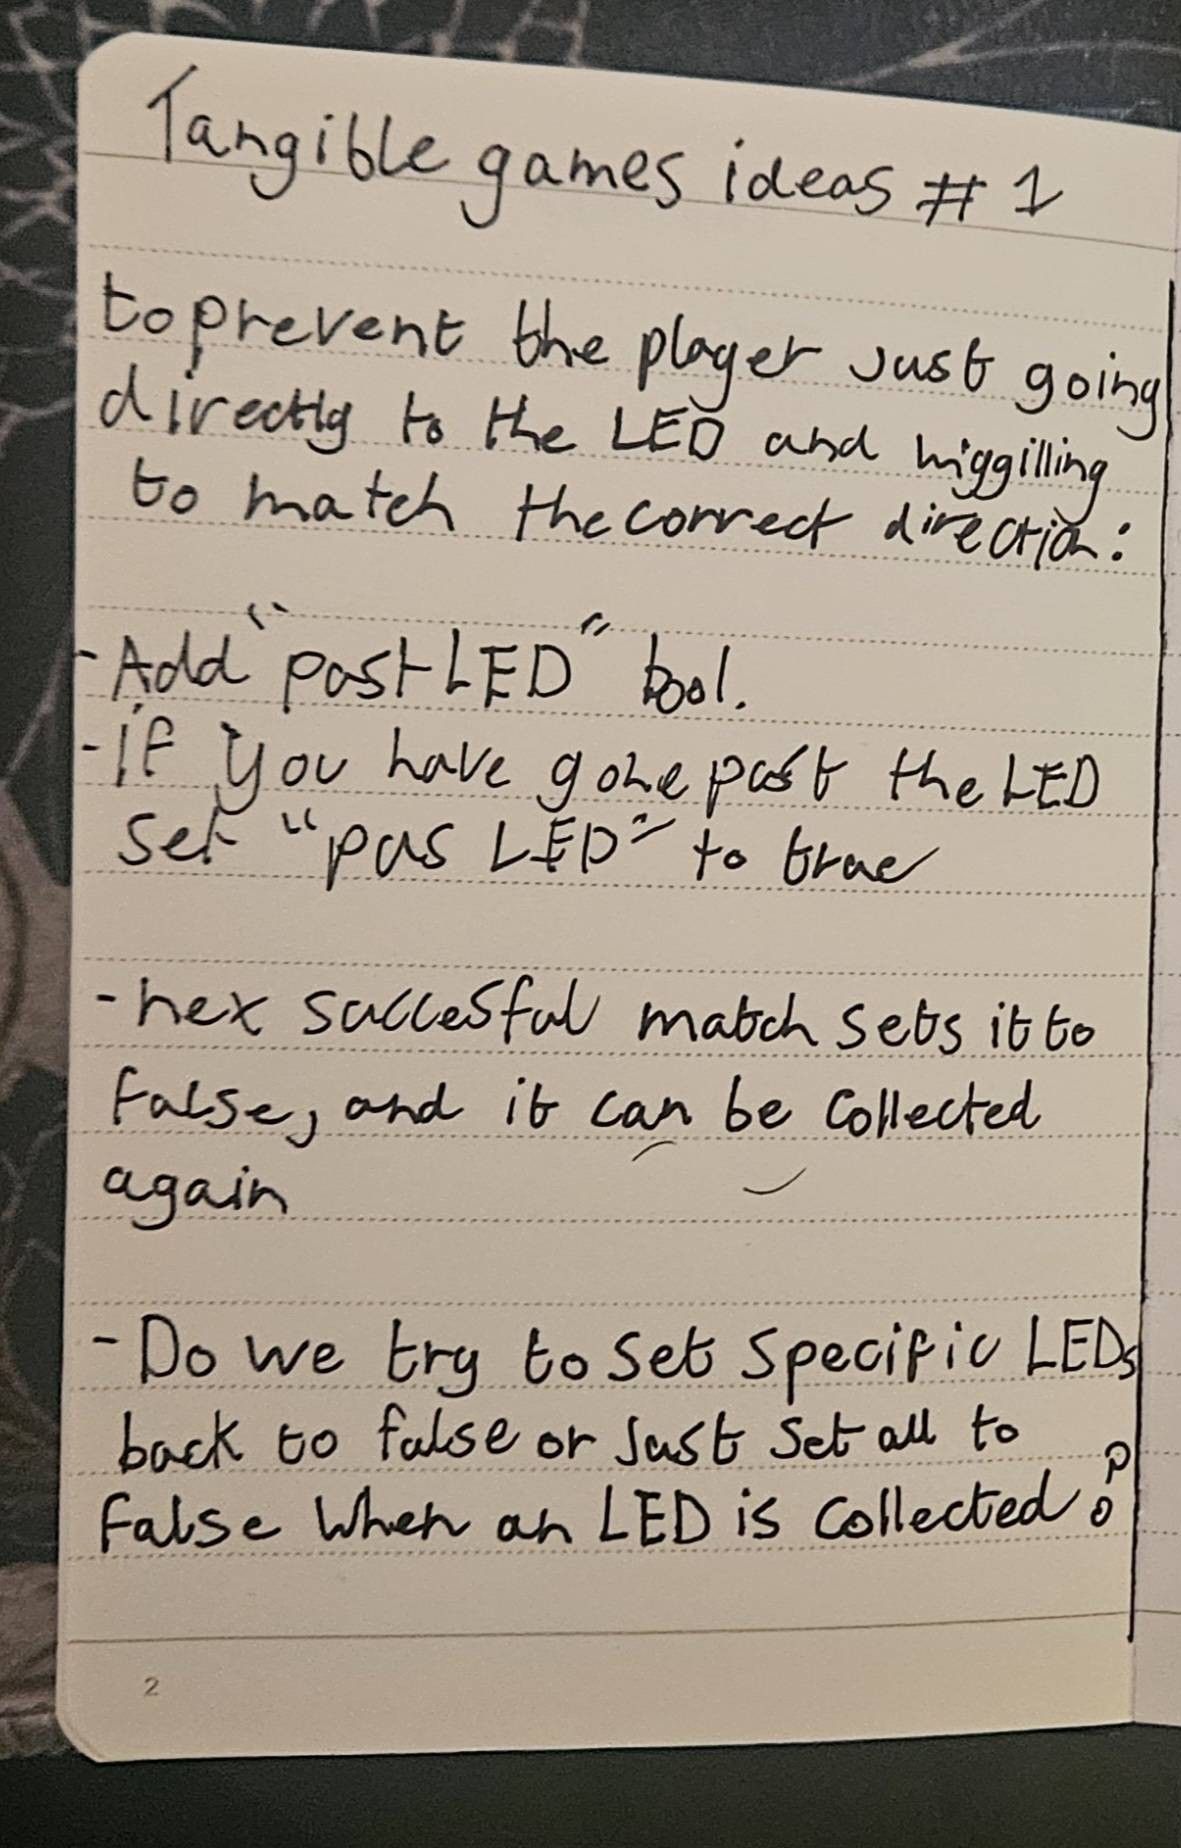 Tangible games ideas #1
to prevent the player just going
directly to the LED and wiggilling
to match the correct direction:
- Add "past LED" bool.
- if you have gone past the LED
set "pas LED" to true
- nex succesful match sets it to
false, and it can be collected
again
- Do we try to set specific LEDs
back to false or just set all to
false when an LED is collected?
2